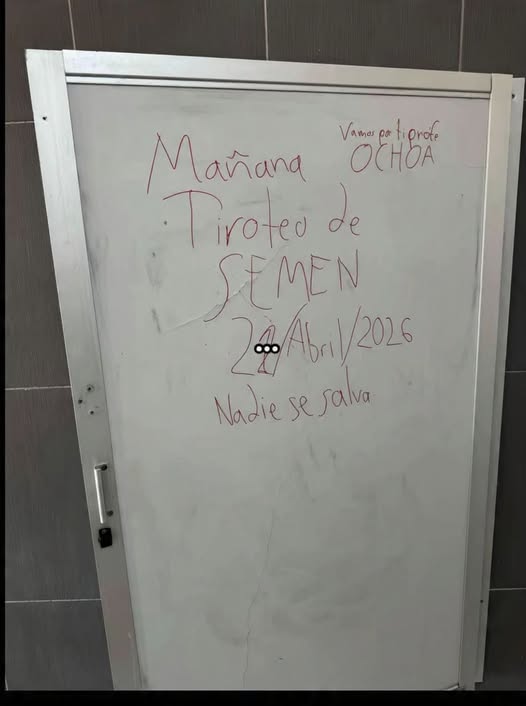 Vamos por ti profe
OCHOA
Mañana
Tiroteo de
SEMEN
/Abril/2026
Nadie se salva